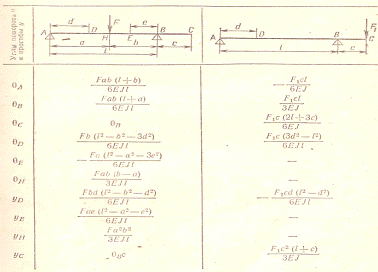 Углы поворота θ и прогибы y
d F e
A D H E B C
a b c
l
d F₁
A D B C
l c
θA Fab (l + b) / 6EJl — F₁cl / 6EJ
θB Fab (l + a) / 6EJl F₁cl / 3EJ
θC θB F₁c (2l + 3c) / 6EJ
θD Fb (l² — b² — 3d²) / 6EJl F₁c (3d² — l²) / 6EJl
θE — Fa (l² — a² — 3e²) / 6EJl —
θH Fab (b — a) / 3EJl —
yD Fbd (l² — b² — d²) / 6EJl — F₁cd (l² — d²) / 6EJl
yE Fae (l² — a² — e²) / 6EJl —
yH Fa²b² / 3EJl —
yC θBc F₁c² (l + c) / 3EJ